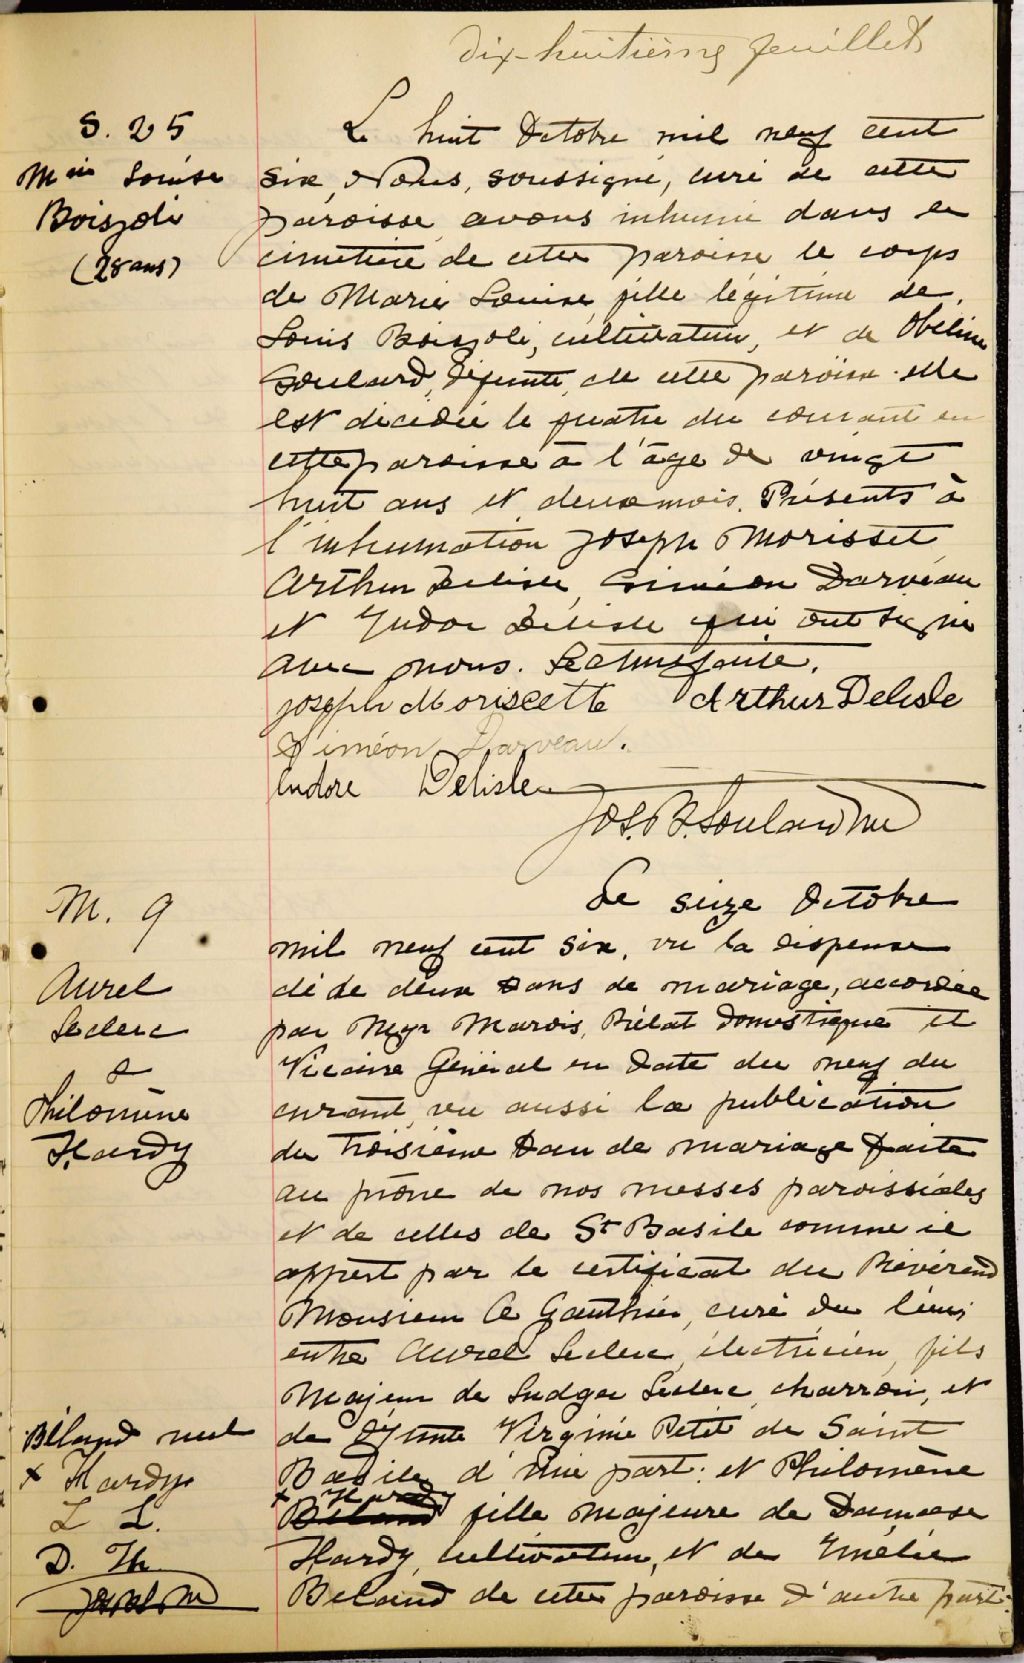 dix-huitième feuillet
S. 25
Mrie Louise
Boisjoli
(28 ans)
Le huit Octobre mil neuf cent
six, Nous, soussigné, curé de cette
paroisse avons inhumé dans le
cimetière de cette paroisse le corps
de Marie Louise, fille légitime de
Louis Boisjoli, cultivateur, et de Obéline
Soulard, défunte, de cette paroisse elle
est décédée le quatre du courant en
cette paroisse à l'âge de vingt
huit ans et deux mois. Présents à
l'inhumation Joseph Morisset
Arthur Delisle, Siméon Darveau
et Eudor Delisle qui ont signé
avec nous. Lecture faite.
Joseph Moriscette Arthur Delisle
Siméon Darveau.
Eudore Delisle
Jos. B. Soulard Ptre
M. 9
Aurel
Leclerc
&
Philomène
Hardy
Le seize Octobre
mil neuf cent six, vu la dispense
de de deux bans de mariage, accordée
par Mgr Marois, Prélat Domestique et
Vicaire Général en date du neuf du
courant, vu aussi la publication
du troisième ban de mariage faite
au prône de nos messes paroissiales
et de celles de St Basile comme il
appert par le certificat du Révérend
Monsieur A Gauthier, curé du lieu;
entre Aurel Leclerc, électricien, fils
Majeur de Ludger Leclerc, charron, et
de défunte Virginie Petit de Saint
Basile, d'une part: et Philomène
x Hardy
Béland fille majeure de Damase
Hardy, cultivateur, et de Emélie
Beland de cette paroisse d'autre part:
Béland nul
x Hardy
L L.
D. H.